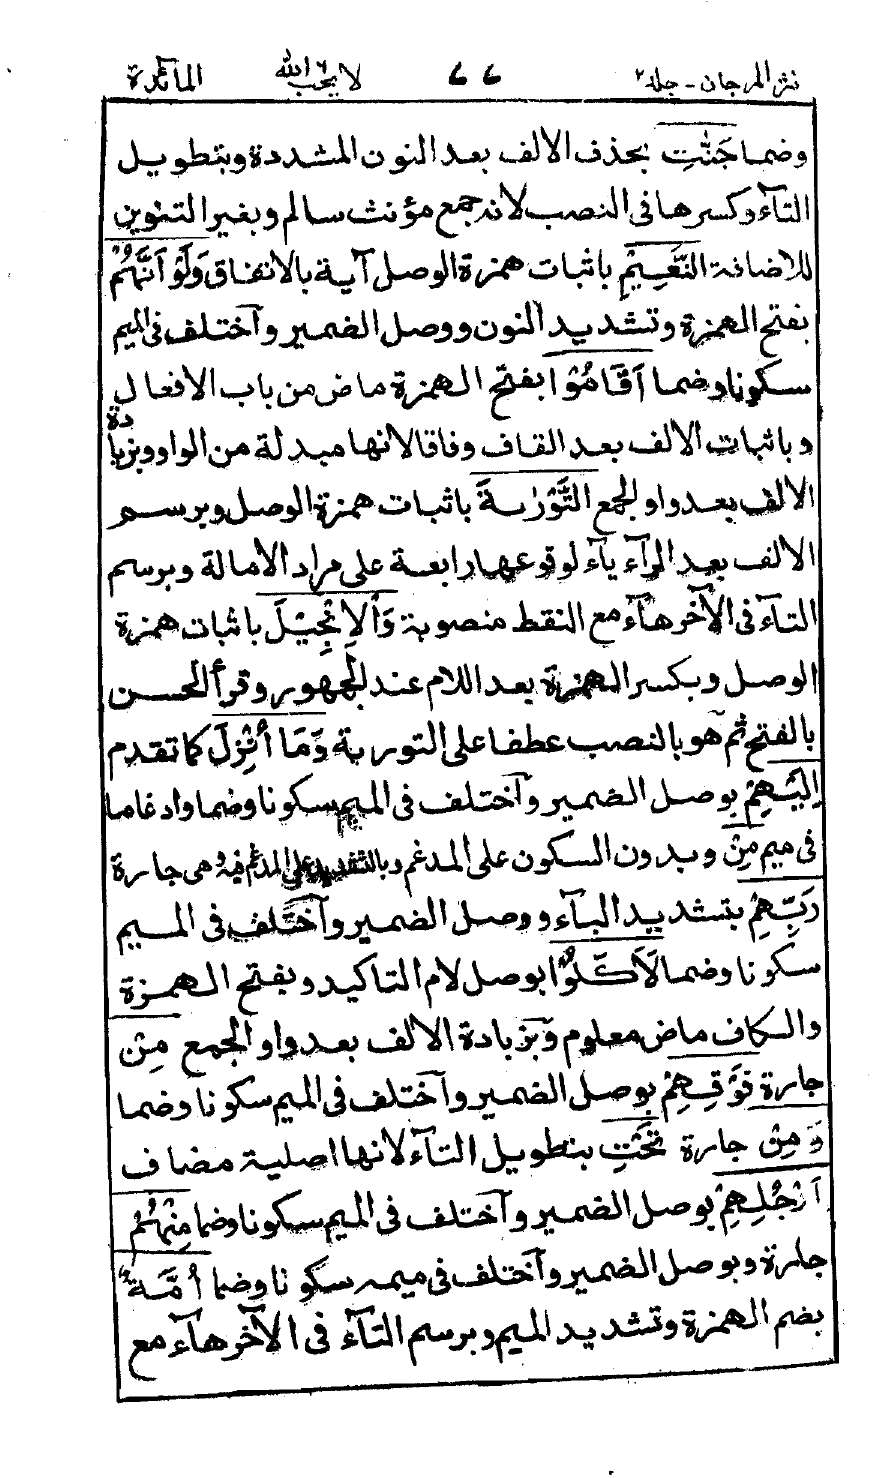 نثر المرجان - جلد ٢ ٤٤ لا يحب الله المآئدة
وضما جَنّٰتِ بحذف الالف بعد النون المشددة وبتطويل
التآء وكسرها فى النصب لانه جمع مؤنث سالم وبغير التنوين
للاضافة النَّعِيْمِ باثبات همزة الوصل آية بالاتفاق وَلَوْ اَنَّهُمْ
بفتح الهمزة وتشديد النون ووصل الضمير وآختلف فى الميم
سكونا وضما اَقَامُوْا بفتح الهمزة ماض من باب الافعال
وباثبات الالف بعد القاف وفاقا لانها مبدلة من الواو وبزيادة
الالف بعد واو الجمع التَّوْرٰىةَ باثبات همزة الوصل وبرسم
الالف بعد الرآء يآء لوقوعها رابعة على مراد الامالة وبرسم
التآء فى الآخر هآء مع النقط منصوبة وَالْاِنْجِيْلَ باثبات همزة
الوصل وبكسر الهمزة بعد اللام عند الجمهور وقرأ الحسن
بالفتح ثم هو بالنصب عطفا على التورىة وَمَآ اُنْزِلَ كما تقدم
اِلَيْهِمْ بوصل الضمير وآختلف فى الميم سكونا وضما وادغاما
فى ميم مِنْ وبدون السكون على المدغم وبالتشديد على المدغم فيه وهى جارة
رَبِّهِمْ بتشديد البآء ووصل الضمير وآختلف فى الميم
سكونا وضما لَاَكَلُوْا بوصل لام التاكيد وبفتح الهمزة
والكاف ماض معلوم وبزيادة الالف بعد واو الجمع مِنْ
جارة فَوْقِهِمْ بوصل الضمير وآختلف فى الميم سكونا وضما
وَمِنْ جارة تَحْتِ بتطويل التآء لانها اصلية مضاف
اَرْجُلِهِمْ بوصل الضمير وآختلف فى الميم سكونا وضما مِنْهُمْ
جارة وبوصل الضمير وآختلف فى ميمه سكونا وضما اُمَّةٌ
بضم الهمزة وتشديد الميم وبرسم التآء فى الآخر هآء مع